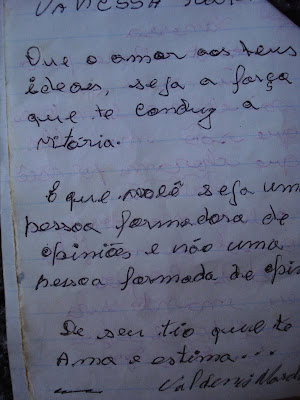 VANESSA
Que o amor aos teus
ideaes, seja a força
que te conduz a
vitória.
E que você seja uma
pessoa formadora de
opiniões e não uma
pessoa formada de opini
De seu tio que te
Ama e estima...